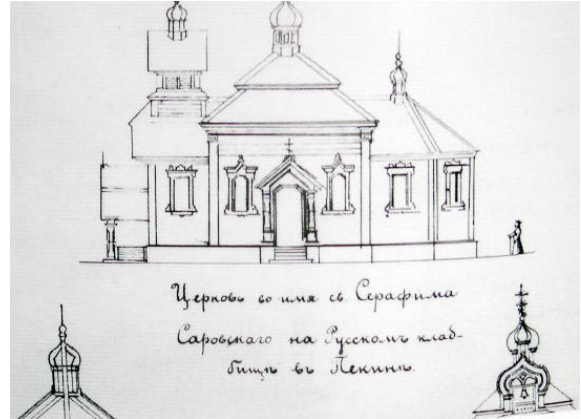 Церковь во имя св. Серафима
Саровскаго на Русскомъ клад-
бищѣ въ Пекинѣ.